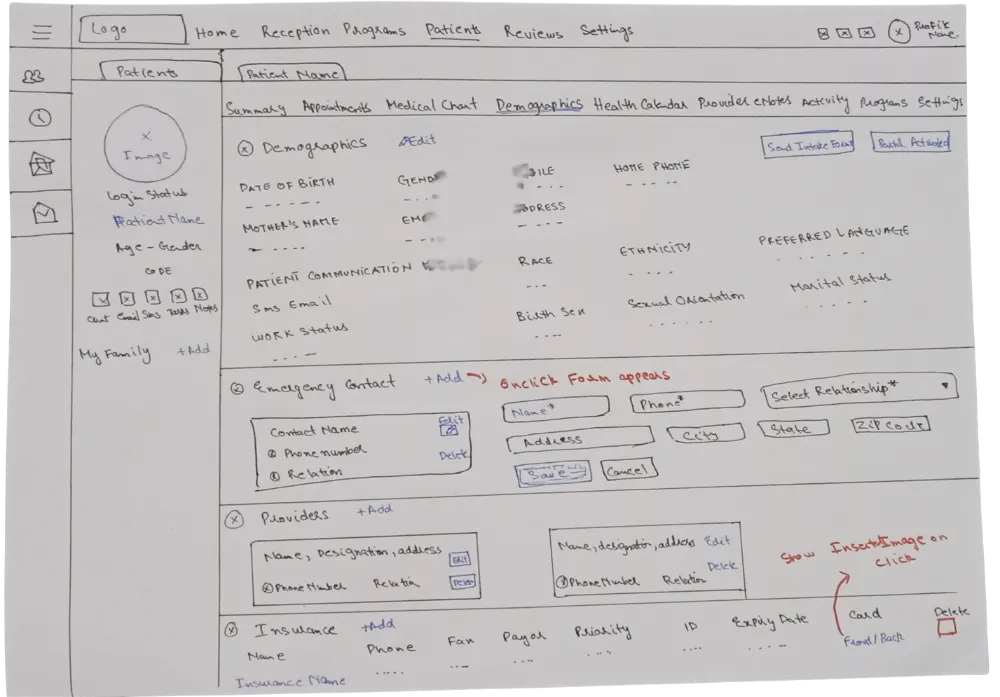 Logo
Home Reception Programs Patients Reviews Settings
Profile Name
Patients
Patient Name
Summary Appointments Medical Chart Demographics Health Calendar Provider eNotes Activity Programs Settings
Image
Login Status
Patient Name
Age - Gender
CODE
Chart Email Sms Tasks Notes
My Family +Add
Demographics Edit
Send Intake Form Portal Activated
DATE OF BIRTH HOME PHONE
MOTHER'S NAME
PATIENT COMMUNICATION RACE ETHNICITY PREFERRED LANGUAGE
Sms Email
WORK Status Birth Sex Sexual Orientation Marital Status
Emergency Contact +Add Onclick Form appears
Contact Name Edit
Phone number Delete
Relation
Name* Phone* Select Relationship*
Address City State Zip Code
Save Cancel
Providers +Add
Name, Designation, address Edit
Phone Number Relation Delete
Name, designation, address Edit
Delete
Phone Number Relation
Show Insurance Image on
click
Insurance +Add
Name Phone Fax Payor Priority ID Expiry Date Card Delete
Front/Back
Insurance Name